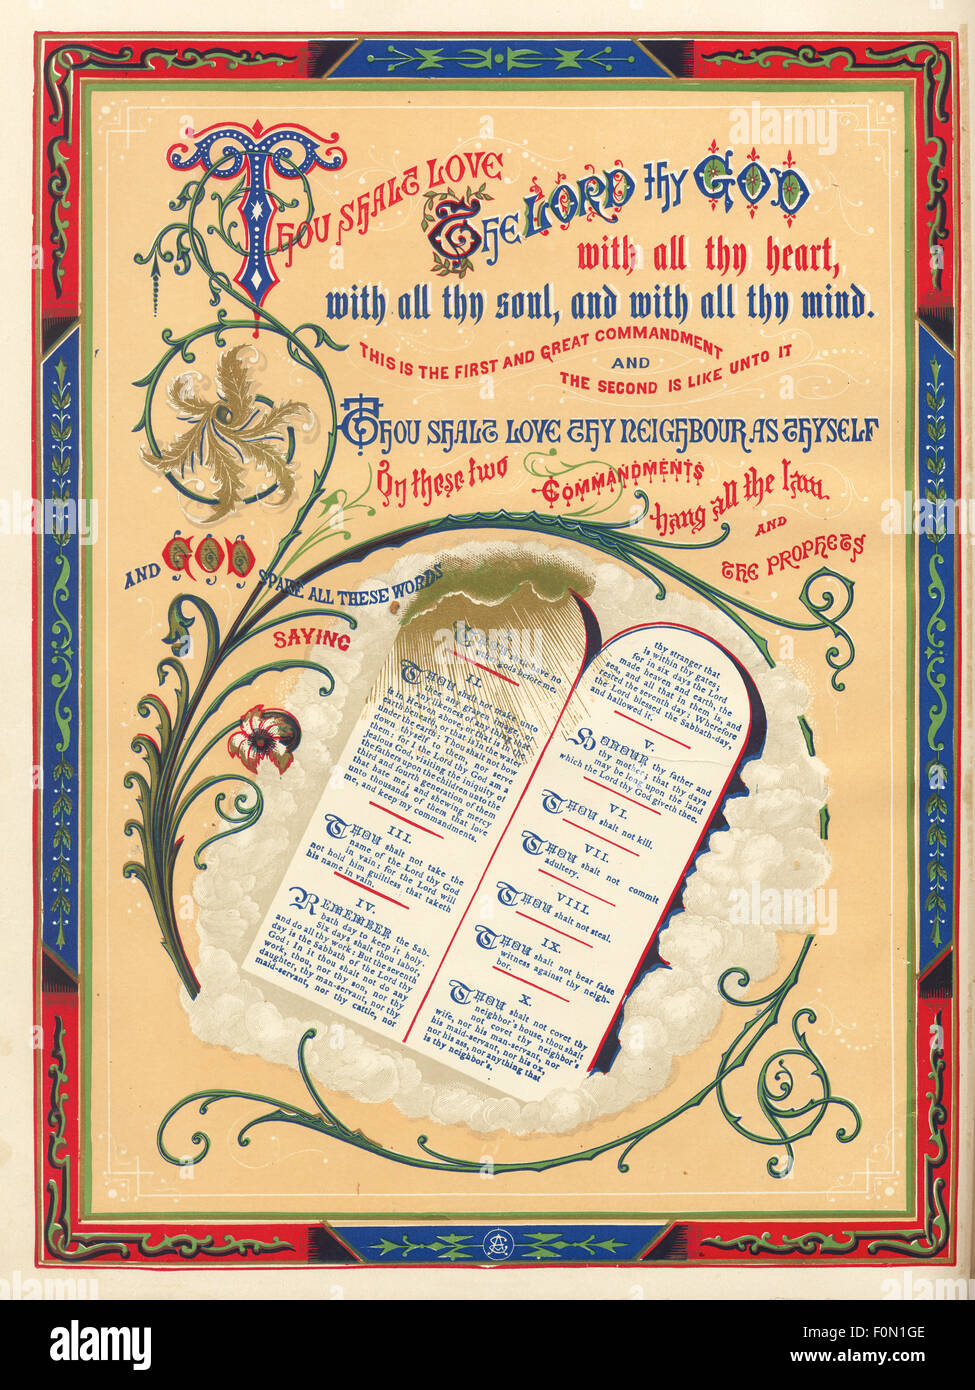 THOU SHALT LOVE
THE LORD thy GOD
with all thy heart,
with all thy soul, and with all thy mind.
THIS IS THE FIRST AND GREAT COMMANDMENT
AND
THE SECOND IS LIKE UNTO IT
THOU SHALT LOVE THY NEIGHBOUR AS THYSELF
On these two COMMANDMENTS
hang all the law
AND
THE PROPHETS
AND GOD SPAKE ALL THESE WORDS
SAYING
have no
gods before me.
II.
THOU shalt not make unto
thee any graven image, or
any likeness of any thing that
is in Heaven above, or that is in the
earth beneath, or that is in the water
under the earth: Thou shalt not bow
down thyself to them, nor serve
them: for I the Lord thy God am a
jealous God, visiting the iniquity of
the fathers upon the children unto the
third and fourth generation of them
that hate me; and shewing mercy
unto thousands of them that love
me, and keep my commandments.
III.
THOU shalt not take the
name of the Lord thy God
in vain: for the Lord will
not hold him guiltless, that taketh
his name in vain.
IV.
REMEMBER the Sab-
bath day to keep it holy.
Six days shalt thou labor,
and do all thy work: But the seventh
day is the Sabbath of the Lord thy
God: In it thou shalt not do any
work, thou, nor thy son, nor thy
daughter, thy man-servant, nor thy
maid-servant, nor thy cattle, nor
thy stranger that
is within thy gates;
for in six days the Lord
made heaven and earth, the
sea, and all that in them is, and
rested the seventh day; Wherefore
the Lord blessed the Sabbath-day,
and hallowed it.
V.
HONOUR thy father and
thy mother; that thy days
may be long upon the land
which the Lord thy God giveth thee.
VI.
THOU shalt not kill.
VII.
THOU shalt not commit
adultery.
VIII.
THOU shalt not steal.
IX.
THOU shalt not bear false
witness against thy neigh-
bor.
X.
THOU shalt not covet thy
neighbor's house, thou shalt
not covet thy neighbor's
wife, nor his man-servant, nor
his maid-servant, nor his ox,
nor his ass, nor anything that
is thy neighbor's.
alamy
alamy stock photo
F0N1GE
www.alamy.com